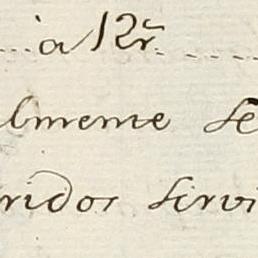 à 12r̃.
lmente se
ridos servi